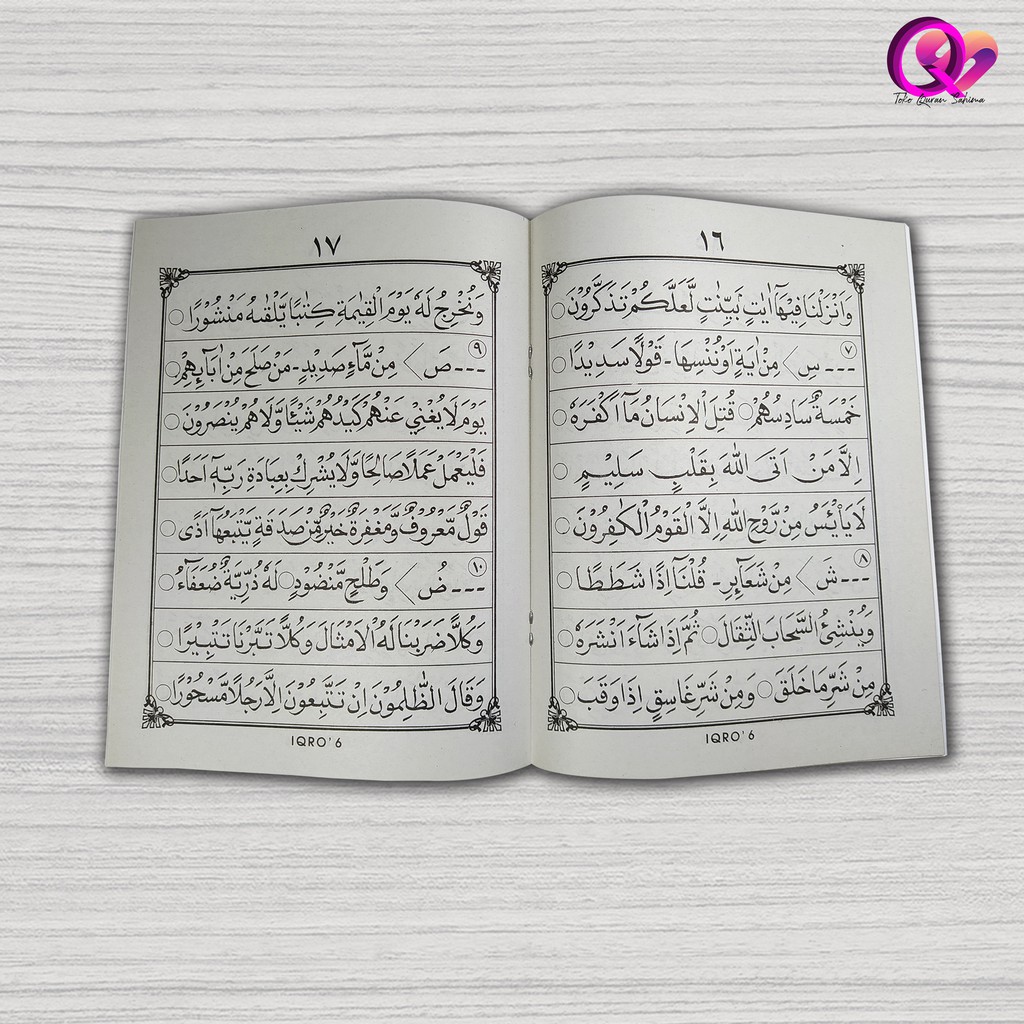 Toko Quran Sahima
١٦
وَاَنْزَلْنَا فِيْهَآ اٰيٰتٍۢ بَيِّنٰتٍ لَّعَلَّكُمْ تَذَكَّرُوْنَ ○
٧ --- سِ > مِنْ اٰيَةٍ اَوْ نُنْسِهَا - قَوْلًا سَدِيْدًا ○
خَمْسَةٌ سَادِسُهُمْ ○ قُتِلَ الْاِنْسَانُ مَآ اَكْفَرَهٗ ○
اِلَّا مَنْ اَتَى اللّٰهَ بِقَلْبٍ سَلِيْمٍ ○
لَا يَا۟يْـَٔسُ مِنْ رَّوْحِ اللّٰهِ اِلَّا الْقَوْمُ الْكٰفِرُوْنَ ○
٨ --- شَ > مِنْ شَعَآىِٕرِ - قُلْنَآ اِذًا شَطَطًا ○
وَيُنْشِئُ السَّحَابَ الثِّقَالَ ○ ثُمَّ اِذَا شَآءَ اَنْشَرَهٗ ○
مِنْ شَرِّ مَا خَلَقَ ○ وَمِنْ شَرِّ غَاسِقٍ اِذَا وَقَبَ ○
IQRO' 6
١٧
وَنُخْرِجُ لَهٗ يَوْمَ الْقِيٰمَةِ كِتٰبًا يَّلْقٰىهُ مَنْشُوْرًا ○
٩ --- صَ > مِنْ مَّآءٍ صَدِيْدٍ - مَنْ صَلَحَ مِنْ اٰبَآىِٕهِمْ ○
يَوْمَ لَا يُغْنِيْ عَنْهُمْ كَيْدُهُمْ شَيْـًٔا وَّلَا هُمْ يُنْصَرُوْنَ ○
فَلْيَعْمَلْ عَمَلًا صَالِحًا وَّلَا يُشْرِكْ بِعِبَادَةِ رَبِّهٖٓ اَحَدًا ○
قَوْلٌ مَّعْرُوْفٌ وَّمَغْفِرَةٌ خَيْرٌ مِّنْ صَدَقَةٍ يَّتْبَعُهَآ اَذًى ○
١٠ --- ضُ > وَطَلْحٍ مَّنْضُوْدٍ ○ لَهٗ ذُرِّيَّةٌ ضُعَفَآءُ ○
وَكُلًّا ضَرَبْنَا لَهُ الْاَمْثَالَ وَكُلًّا تَبَّرْنَا تَتْبِيْرًا ○
وَقَالَ الظّٰلِمُوْنَ اِنْ تَتَّبِعُوْنَ اِلَّا رَجُلًا مَّسْحُوْرًا ○
IQRO' 6